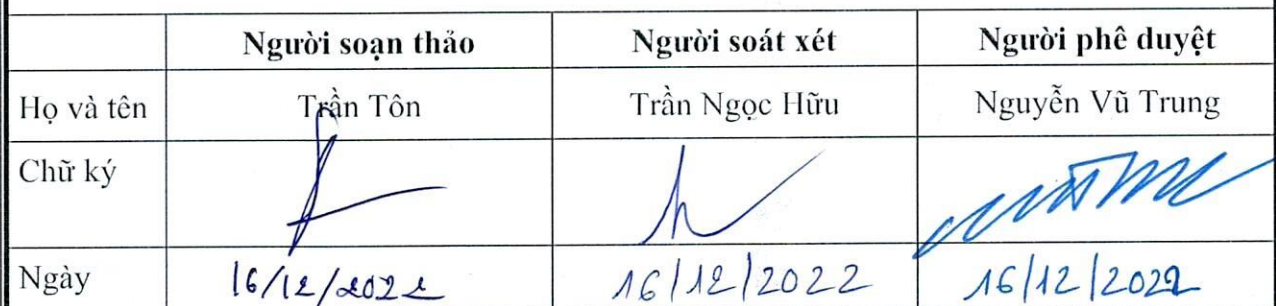 Người soạn thảo Người soát xét Người phê duyệt
Họ và tên Trần Tôn Trần Ngọc Hữu Nguyễn Vũ Trung
Chữ ký
Ngày 16/12/2022 16/12/2022 16/12/2022